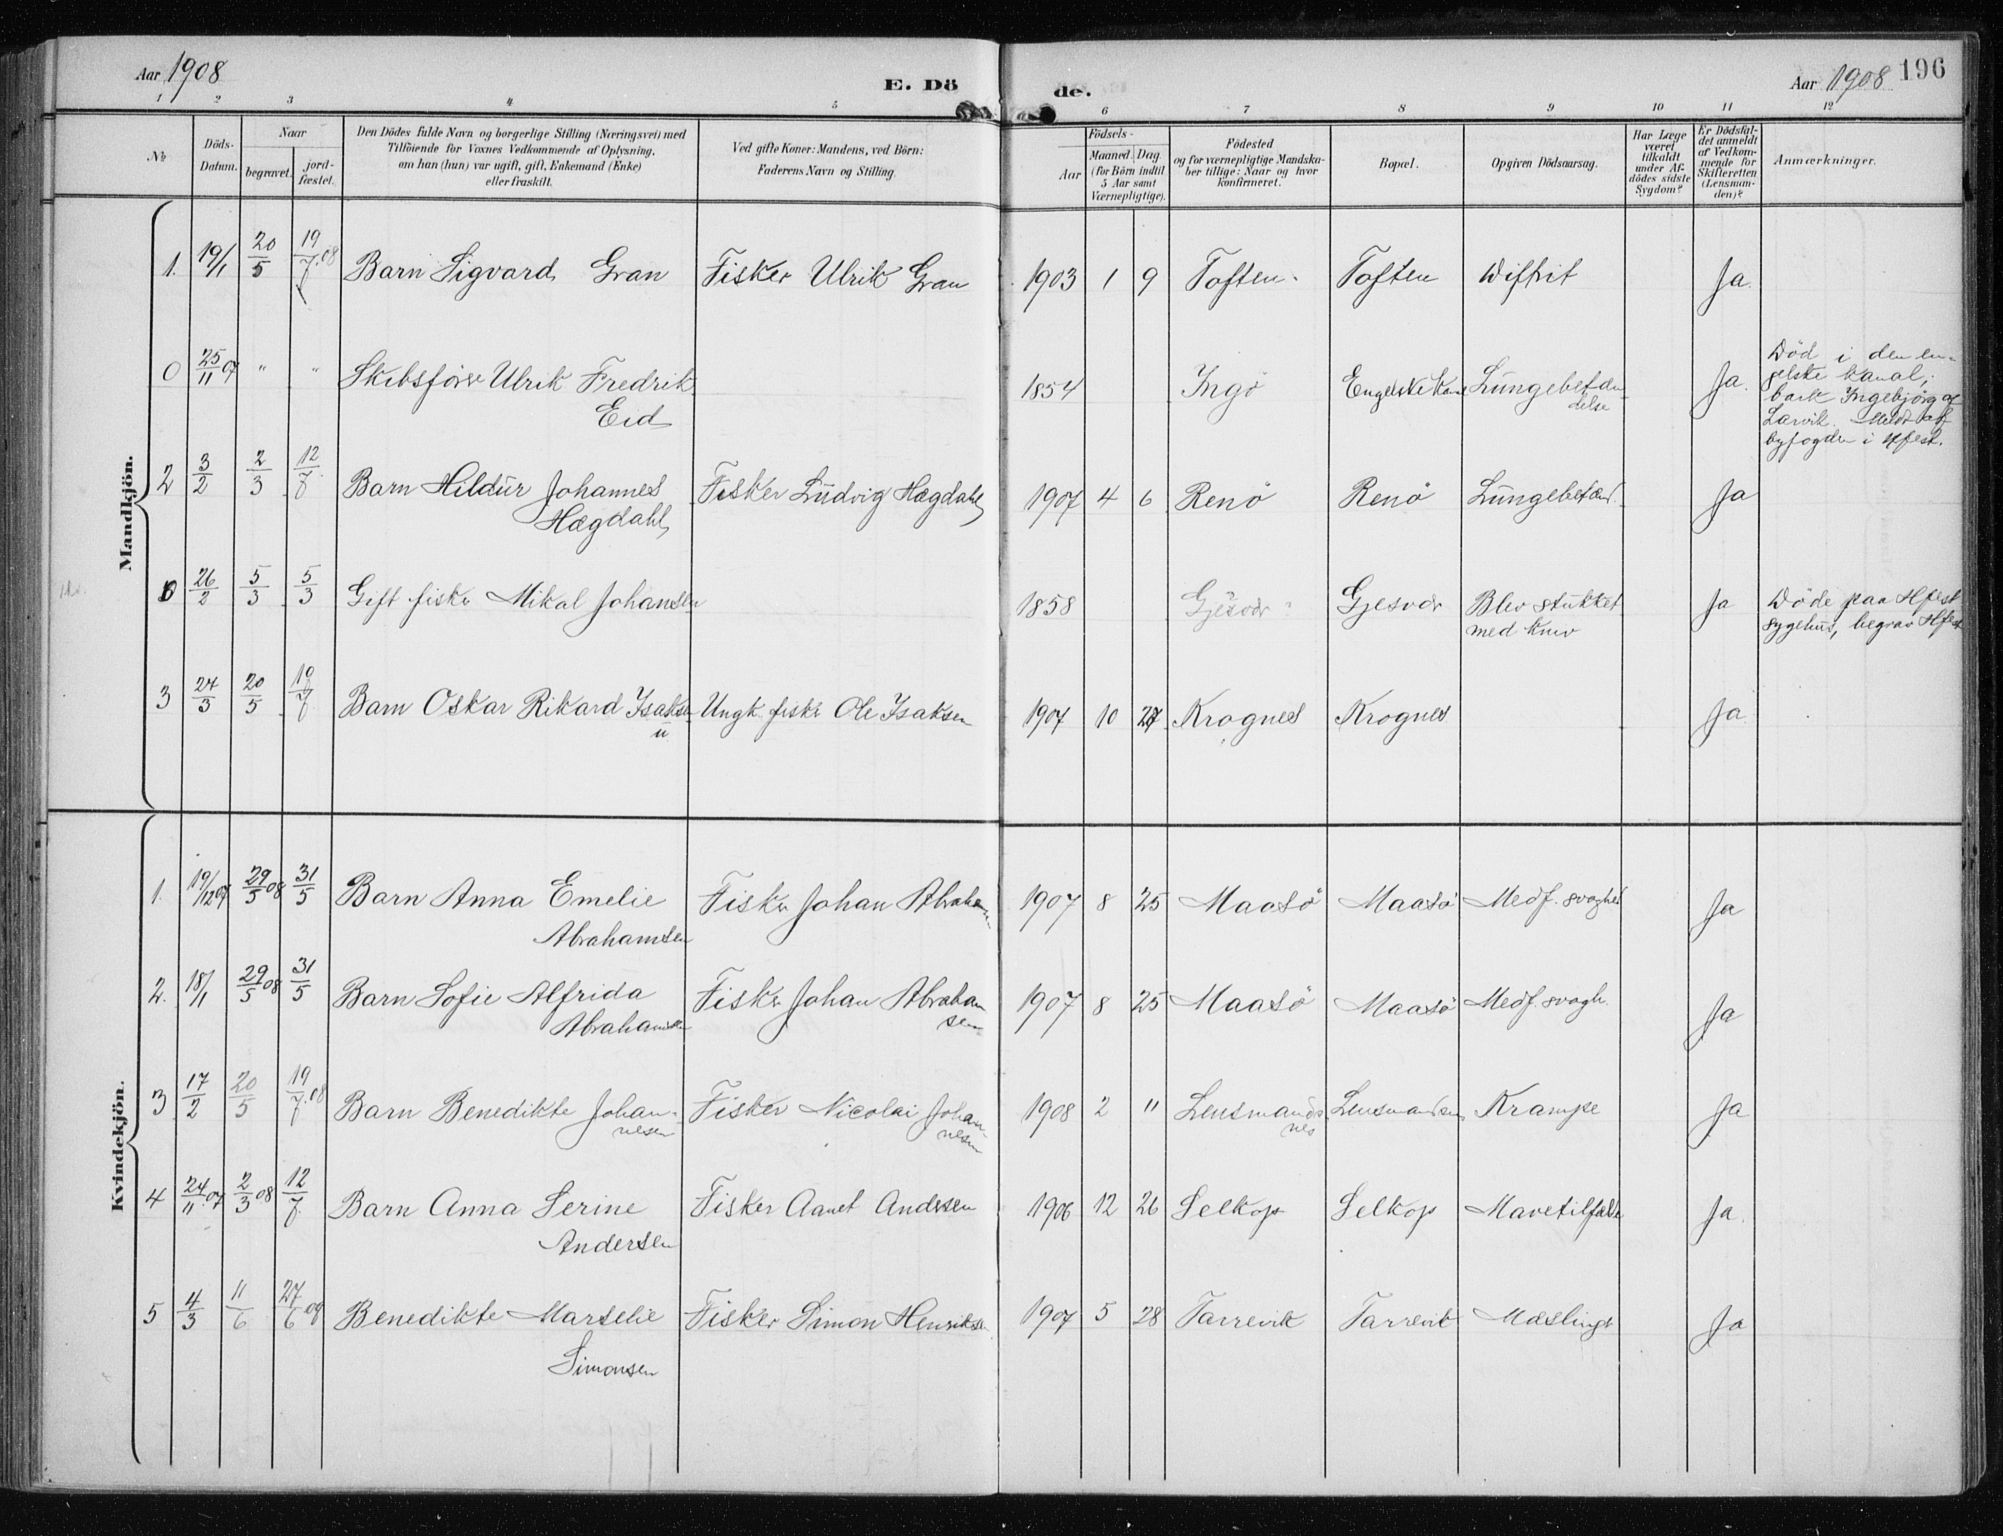 Aar 1908
E. Dö
de.
Aar 1908
196
1 2 3 4 5 6 7 8 9 10 11 12
No
Döds-
Datum.
Naar
begravet.
jord-
fæstet.
Den Dödes fulde Navn og borgerlige Stilling (Næringsvei) med
Tilföiende for Voxnes Vedkommende af Oplysning,
om han (hun) var ugift, gift, Enkemand (Enke)
eller fraskilt.
Ved gifte Koner: Mandens, ved Börn:
Faderens Navn og Stilling.
Födsels-
Aar
Maaned.
Dag.
(for Börn indtil
5 Aar samt
Værnepligtige).
Födested
og for værnepligtige Mandska-
ber tillige: Naar og hvor
konfirmeret.
Bopæl.
Opgiven Dödsaarsag.
Har Læge
været
tilkaldt
under Af-
dödes sidste
Sygdom?
Er Dödsfal-
det anmeldt
af Vedkom-
mende for
Skifteretten
(Lensman-
den)?
Anmærkninger.
Mandkjön.
1. 19/1 20/5 19/7.08 Barn Sigvard Gran Fisker Ulrik Gran 1903 1 9 Toften. Toften Diftrit Ja.
0 25/11 07 " " Skibsfører Ulrik Fredrik
Eid
1854 Ingö Engelske Kan Lungebetæn-
delse
Ja.
Död i den en-
gelske kanal,
bark Ingebjörg af
Larvik. Meldt af
byfogden i Hfest.
2 3/2 2/3 12/7 Barn Hildur Johannes
Hægdahl
Fisker Ludvig Hægdahl 1907 4 6 Renö Renö Lungebetænd. Ja
0 26/2 5/3 5/3 Gift fisker Mikal Johansen 1858 Gjesvær Gjesvær Blev stukket
med kniv
Ja
Döde paa Hfest
sygehus, begrav Hfest
3 24/3 20/5 19/7 Barn Oskar Rikard Isaksen
u
Ungk. fisker Ole Isaksen 1907 10 27 Krognes Krognes Ja.
Kvindekjön.
1. 19/12 07 29/5 08 31/5 Barn Anna Emelie
Abrahamsen
Fisker Johan Abraham 1907 8 25 Maasö Maasö Medf. svaghed Ja
2. 18/1 29/5 08 31/5 Barn Sofie Alfrida
Abrahamsen
Fisker Johan Abraham
sen
1907 8 25 Maasö Maasö Medf. svagh. Ja
3 17/2 20/5 19/7.08 Barn Benedikte Johan-
nesen
Fisker Nicolai Johan-
nesen
1908 2 " Lensmands
nes
Lensmandsn Krampe Ja
4 24/11.07 2/3 08 12/7 Barn Anna Serine
Andersen
Fisker Aanet Andersen 1906 12 26 Selkop Selkop Mavetilfælde Ja.
5 4/3 11/6 27/6 09 Benedikte Marselie
Simonsen
Fisker Simon Henriksen 1907 5 28 Tarrevik Tarrevik Mæslinge Ja